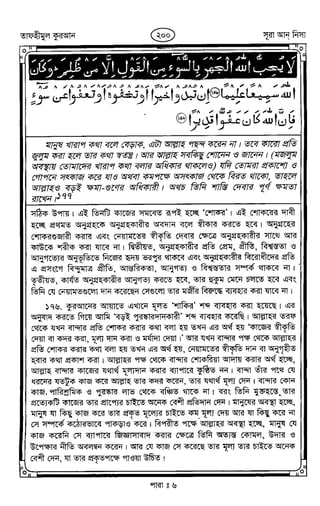 তাফহীমুল কুরআন
২০০
সূরা আন্ নিসা
لَا يُحِبُّ اللهُ الْجَهْرَ بِالسُّوْءِ مِنَ الْقَوْلِ اِلَّا مَنْ ظُلِمَ ؕ وَكَانَ
اللهُ سَمِيْعًا عَلِيْمًا ۝ اِنْ تُبْدُوْا خَيْرًا اَوْ تُخْفُوْهُ اَوْ تَعْفُوْا عَنْ سُوْءٍ
فَاِنَّ اللهَ كَانَ عَفُوًّا قَدِيْرًا ۝
মানুষ খারাপ কথা বলে বেড়াক, এটা আল্লাহ পছন্দ করেন না। তবে কারো প্রতি
জুলুম করা হলে তার কথা স্বতন্ত্র। আর আল্লাহ সবকিছু শোনেন ও জানেন। (মজলুম
অবস্থায় তোমাদের খারাপ কথা বলার অধিকার থাকলেও) যদি তোমরা প্রকাশ্যে ও
গোপনে সৎকাজ করে যাও অথবা কমপক্ষে অসৎকাজ থেকে বিরত থাকো, তাহলে
আল্লাহও বড়ই ক্ষমা-গুণের অধিকারী। অথচ তিনি শাস্তি দেবার পূর্ণ ক্ষমতা
রাখেন।১৭৭
সঠিক উপায়। এই তিনটি কাজের সমবেত রূপই হচ্ছে 'শোকর'। এই শোকরের দাবী
হচ্ছে প্রথমত অনুগ্রহকে অনুগ্রহকারীর অবদান বলে স্বীকার করতে হবে। অনুগ্রহের
শোকরগুজারী করার এবং নেয়ামতের স্বীকৃতি দেবার ক্ষেত্রে অনুগ্রহকারীর সাথে আর
কাউকে শরীক করা যাবে না। দ্বিতীয়ত, অনুগ্রহকারীর প্রতি প্রেম, প্রীতি, বিশ্বস্ততা ও
আনুগত্যের অনুভূতিতে নিজের হৃদয় ভরপুর থাকবে এবং অনুগ্রহকারীর বিরোধীদের প্রতি
এ প্রসংগে বিন্দুমাত্র প্রীতি, আন্তরিকতা, আনুগত্য ও বিশ্বস্ততার সম্পর্ক থাকবে না।
তৃতীয়ত, কার্যত অনুগ্রহকারীর আনুগত্য করতে হবে, তার হুকুম মেনে চলতে হবে এবং
তিনি যে নিয়ামতগুলো দান করেছেন সেগুলো তার মর্জীর বিরুদ্ধে ব্যবহার করা যাবে না।
১৭৬. কুরআনের আয়াতে এখানে মূলত 'শাকির' শব্দ ব্যবহার করা হয়েছে। এর
অনুবাদ করতে গিয়ে আমি 'বড়ই পুরস্কারদানকারী' শব্দ ব্যবহার করেছি। আল্লাহর তরফ
থেকে যখন বান্দার প্রতি শোকর করার কথা বলা হয় তখন এর অর্থ হয় 'কাজের স্বীকৃতি
দেয়া বা কদর করা, মূল্য দান করা ও মর্যাদা দেয়া।' আর যখন বান্দার পক্ষ থেকে আল্লাহর
প্রতি শোকর করার কথা বলা হয় তখন এর অর্থ হয়, নেয়ামতের স্বীকৃতি দান বা অনুগৃহীত
হবার কথা প্রকাশ করা। আল্লাহর পক্ষ থেকে বান্দার শোকরিয়া আদায় করার অর্থ হচ্ছে,
আল্লাহ বান্দার কাজের যথার্থ মূল্যদান করার ব্যাপারে কুণ্ঠিত নন। বান্দা তাঁর পথে যে
ধরনের যতটুকু কাজ করে আল্লাহ তার কদর করেন, তার যথার্থ মূল্য দেন। বান্দার কোন
কাজ, পারিশ্রমিক ও পুরস্কার লাভ থেকে বঞ্চিত থাকে না। বরং তিনি মুক্তহস্তে তার
প্রত্যেকটি কাজের তার প্রাপ্যের চাইতে অনেক বেশী প্রতিদান দেন। মানুষের অবস্থা হচ্ছে,
মানুষ যা কিছু কাজ করে তার প্রকৃত মূল্যের চাইতে কম মূল্য দেয় আর যা কিছু করে না
সে সম্পর্কে কঠোরভাবে পাকড়াও করে। বিপরীত পক্ষে আল্লাহর অবস্থা হচ্ছে, মানুষ যে
কাজ করেনি সে ব্যাপারে জিজ্ঞাসাবাদ করার ক্ষেত্রে তিনি অত্যন্ত কোমল, উদার ও
উপেক্ষার নীতি অবলম্বন করেন। আর যে কাজ সে করেছে তার মূল্য তার চাইতে অনেক
বেশী দেন, যা তার প্রকৃতপক্ষে পাওয়া উচিত।
পারা ঃ ৬